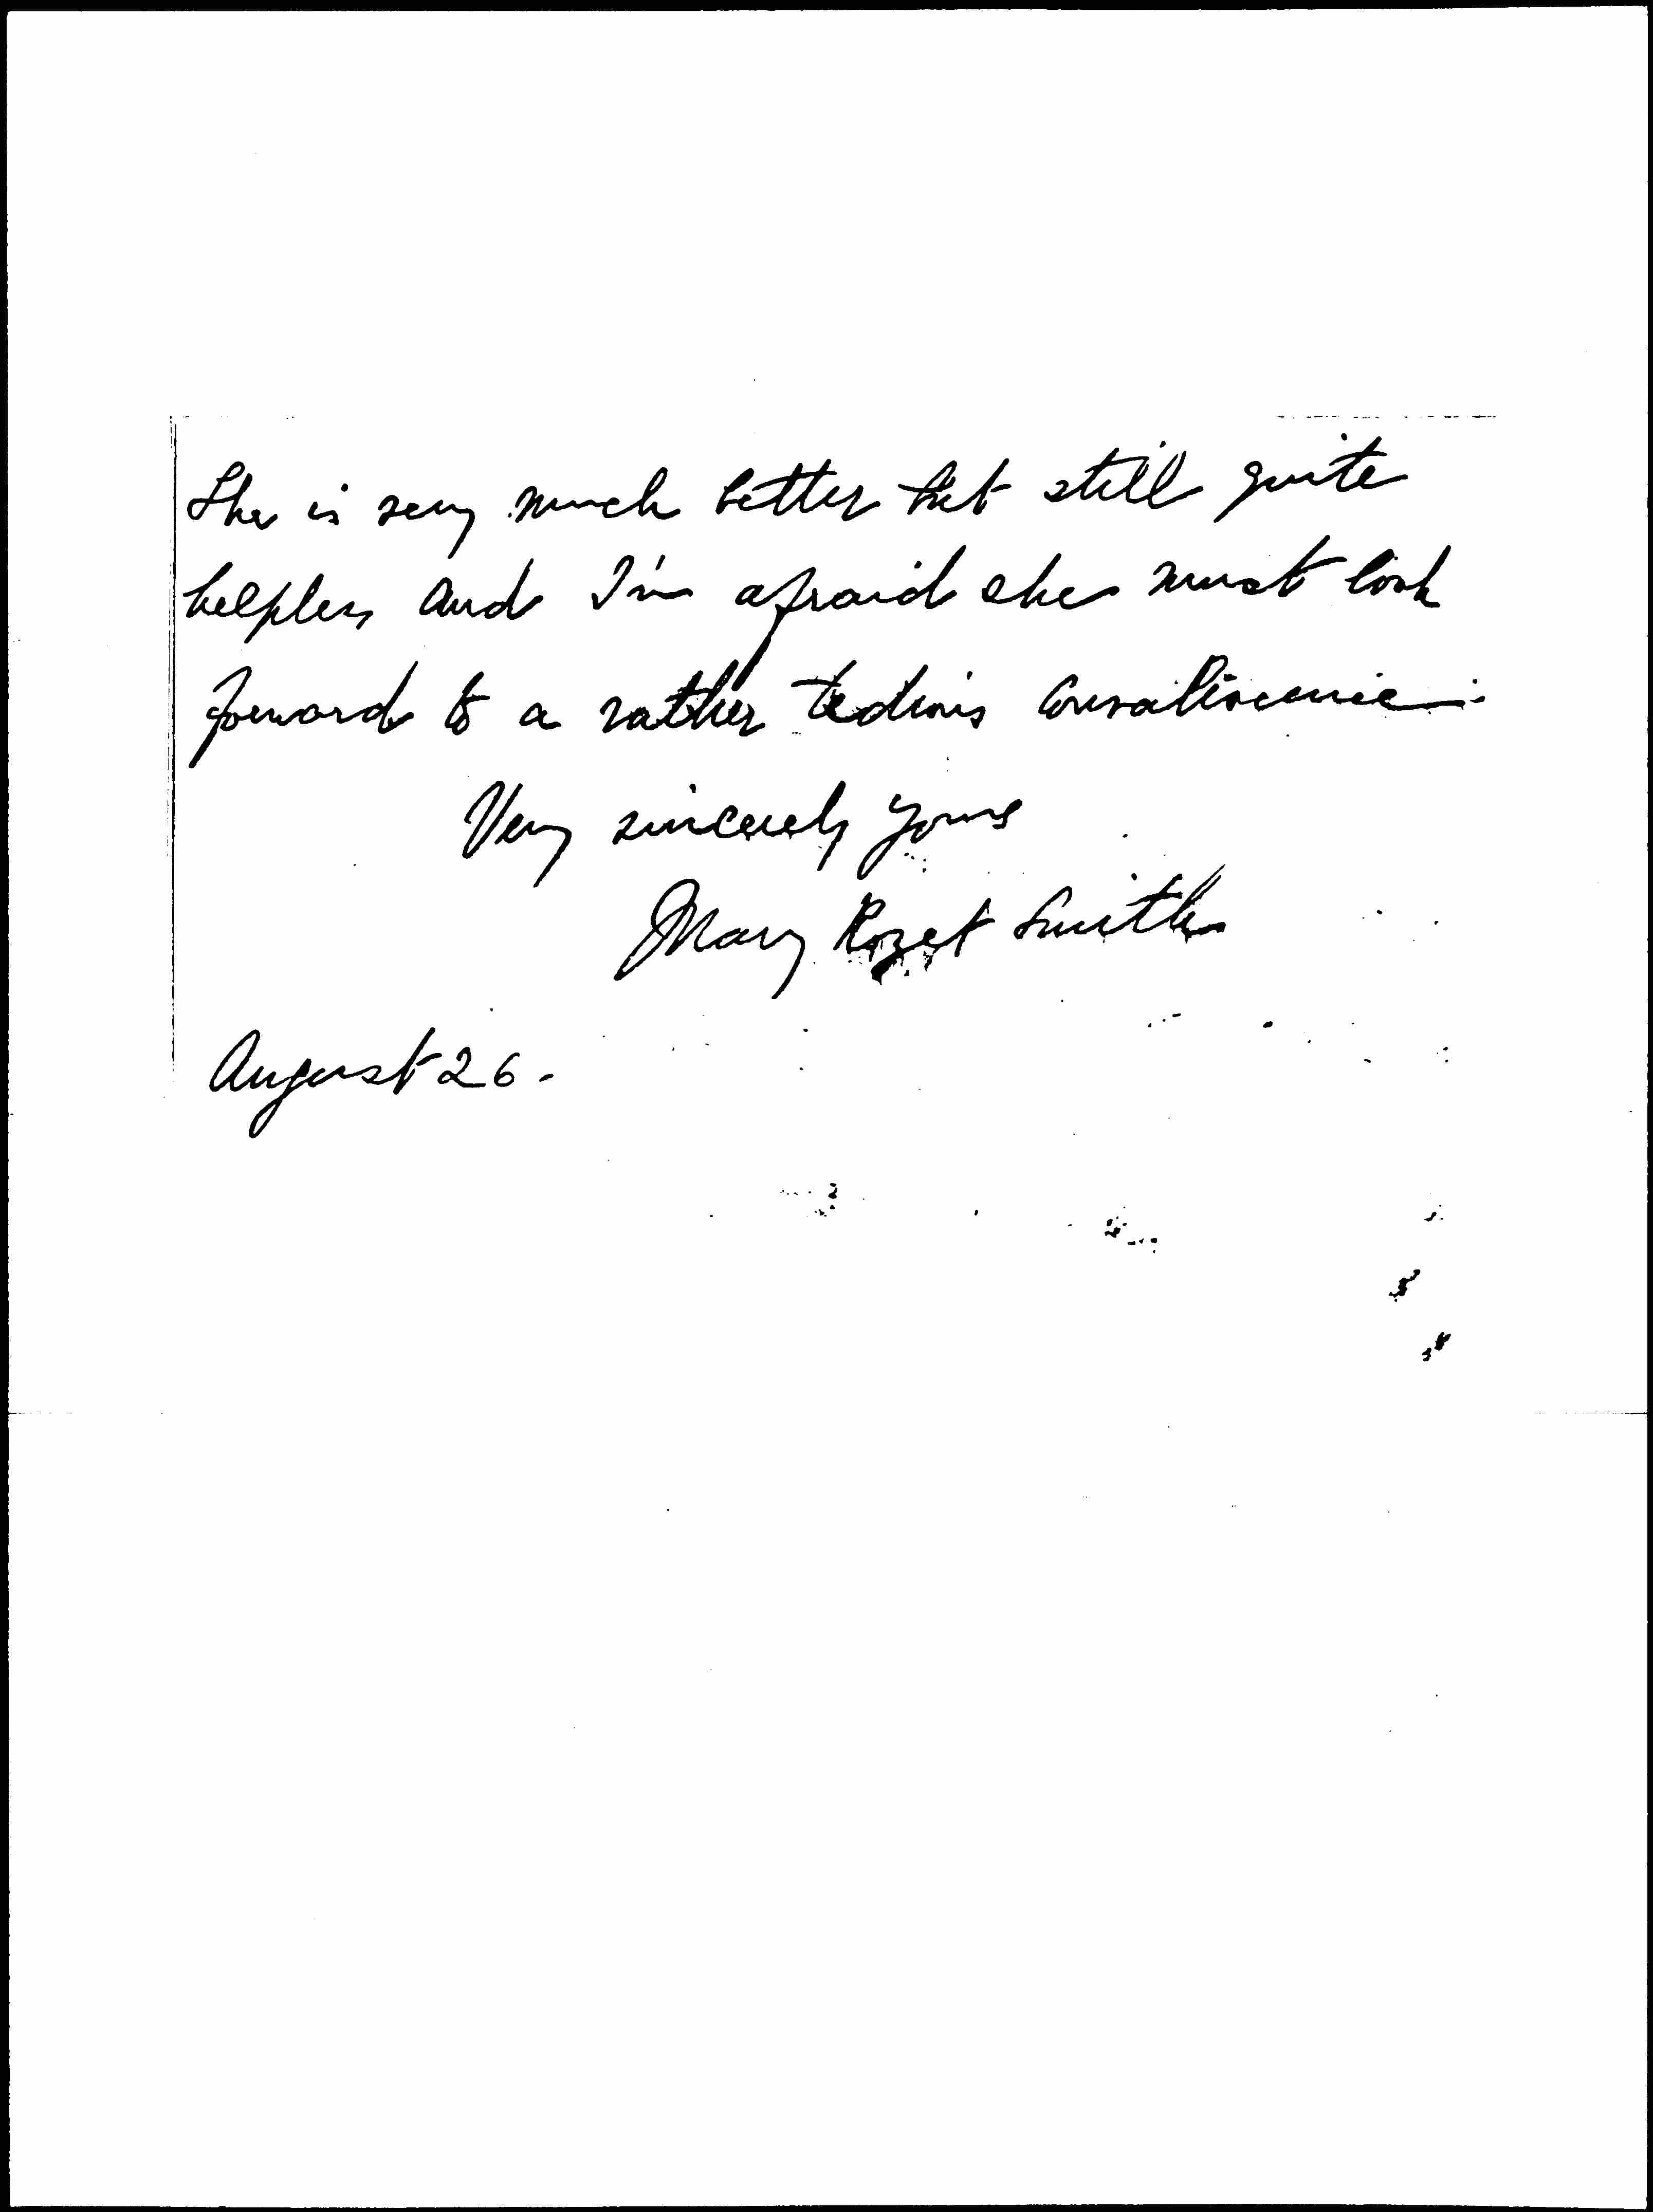 She is very much better but still quite
helpless and I'm afraid she must look
forward to a rather tedious convalescence.
Very sincerely yours
Mary Rozet Smith
August 26.